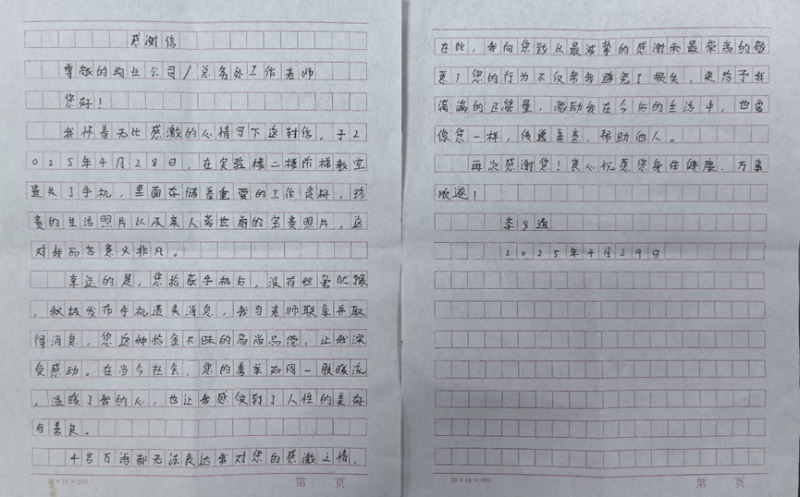 感谢信
尊敬的物业公司/总务处工作老师
您好!
我怀着无比感激的心情写下这封信。于2
025年4月28日,在实验楼二楼阶梯教室
遗失了手机,里面存储着重要的工作资料、珍
贵的生活照片以及亲人离世前的宝贵照片,这
对我而言意义非凡。
幸运的是,您拾获手机后,没有丝毫犹豫
,积极发布手机遗失消息,我与老师联系并取
得消息,您这种拾金不昧的高尚品德,让我深
受感动。在当今社会,您的善举如同一股暖流
,温暖了我的心,也让我感受到了人性的美好
与善良。
千言万语都无法表达我对您的感激之情,
20×15=300
第 页
在此,我向您致以最诚挚的感谢和最崇高的敬
意!您的行为不仅帮我避免了损失,更给予我
满满的正能量,激励我在今后的生活中,也要
像您一样,传递善意,帮助他人。
再次感谢您!衷心祝愿您身体健康,万事
顺遂!
李
2025年4月29日
20×15=300
第 页